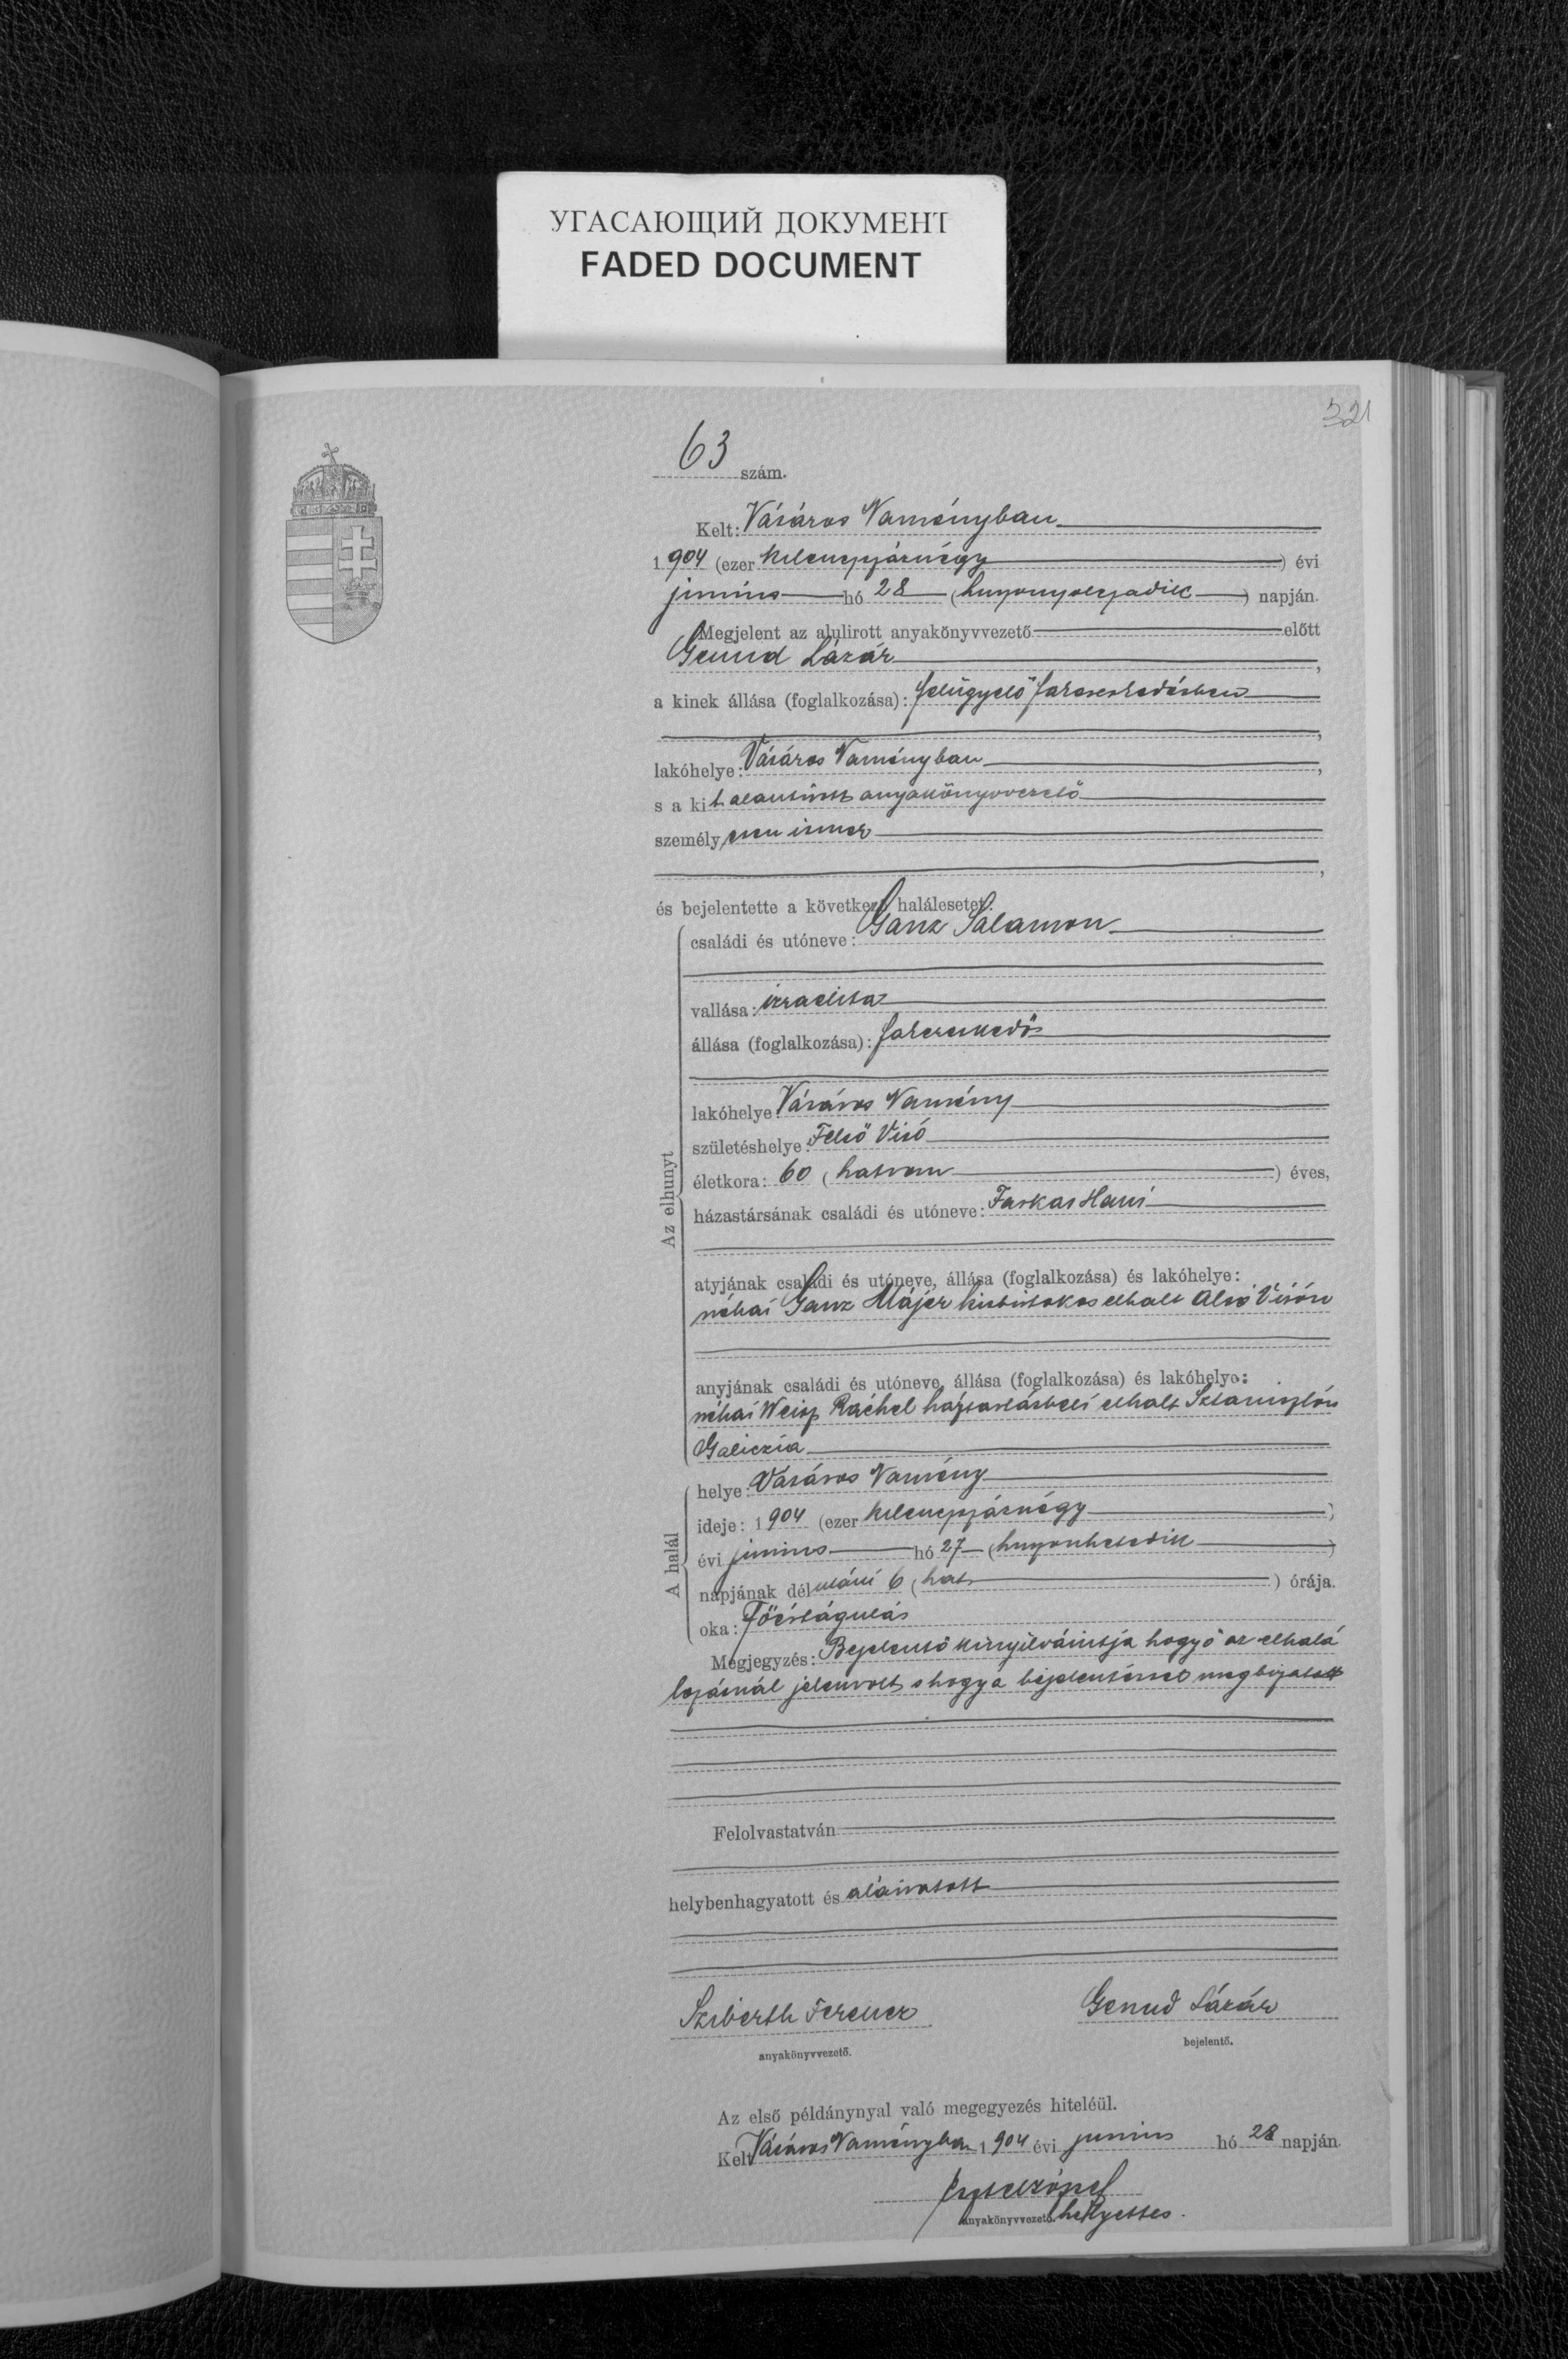 УГАСАЮЩИЙ ДОКУМЕНТ
FADED DOCUMENT
321
63 szám.
Kelt: Vásáros Naményban
1904 (ezer kilenczszáznégy) évi
junius hó 28 (huszonyolczadik) napján.
Megjelent az alulirott anyakönyvvezető előtt
Genud Lázár,
a kinek állása (foglalkozása): felügyelő fakereskedésben
,
lakóhelye: Vásáros Naményban,
s a kit alantirott anyakönyvvezető
személyesen ismer
,
és bejelentette a következő halálesetet:
Az elhunyt
családi és utóneve: Ganz Salamon
vallása: izraelita
állása (foglalkozása): fakereskedő
lakóhelye: Vásáros Namény
születéshelye: Felső Visó
életkora: 60 (hatvan) éves,
házastársának családi és utóneve: Farkas Hani
atyjának családi és utóneve, állása (foglalkozása) és lakóhelye:
néhai Ganz Májer kisbirtokos elhalt Alsó Visón
anyjának családi és utóneve, állása (foglalkozása) és lakóhelye:
néhai Weisz Ráchel háztartásbeli elhalt
Galiczia
A halál
helye: Vásáros Namény
ideje: 1904 (ezer kilenczszáznégy)
évi junius hó 27 (huszonhetedik)
napjának délutáni 6 (hat) órája.
oka: Tüdőtágulás
Megjegyzés: Bejelentő kinyilvánitja hogy ő az elhalá
lozásnál jelenvolt s hogy a bejelentéssel megbizatott
Felolvastatván
helybenhagyatott és aláiratott
Sziberth Ferencz
anyakönyvvezető.
Genud Lázár
bejelentő.
Az első példánynyal való megegyezés hiteléül.
Kelt Vásáros Naményban 1904 évi junius hó 28 napján.
anyakönyvvezető helyettes.